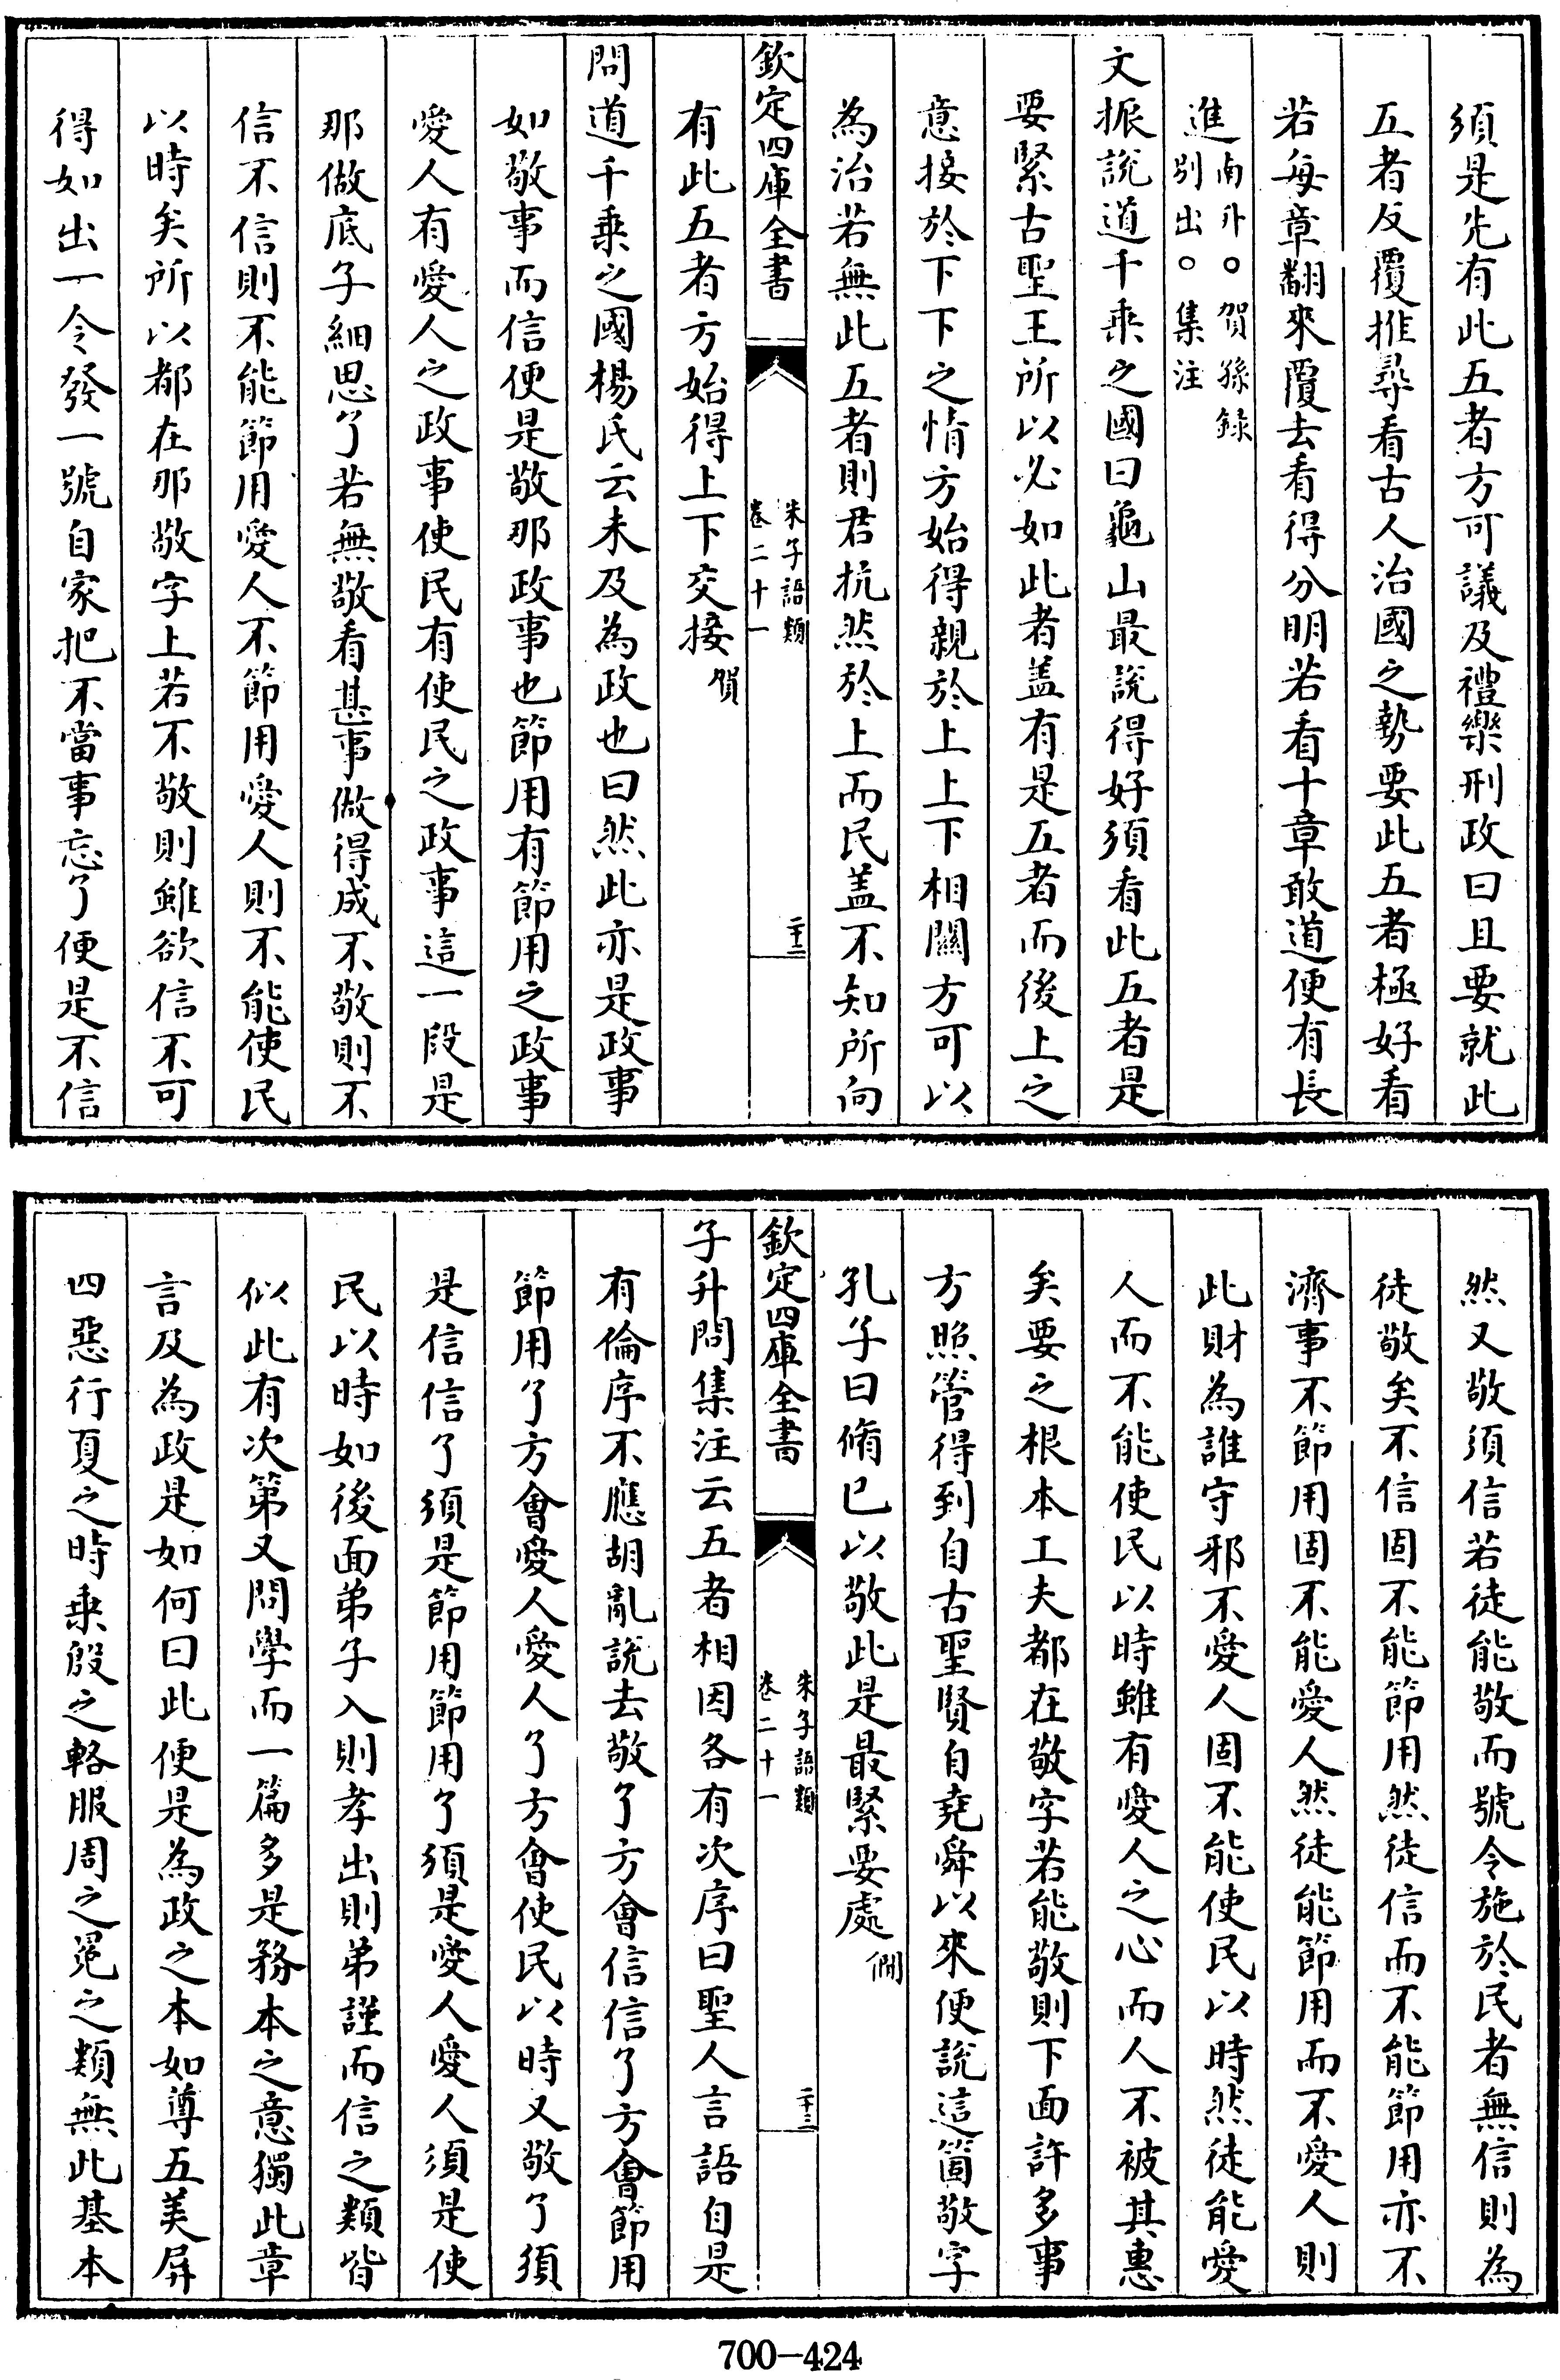 須是先有此五者方可議及禮樂刑政曰且要就此
五者反覆推尋看古人治國之勢要此五者極好看
若每章翻來覆去看得分明若看十章敢道便有長
進南升○賀孫錄
別出○集注
文振說道千乘之國曰龜山最說得好須看此五者是
要緊古聖王所以必如此者盖有是五者而後上之
意接於下下之情方始得親於上上下相關方可以
為治若無此五者則君抗然於上而民盖不知所向
欽定四庫全書
朱子語類
卷二十一
二十二
有此五者方始得上下交接賀
問道千乘之國楊氏云未及為政也曰然此亦是政事
如敬事而信便是敬那政事也節用有節用之政事
愛人有愛人之政事使民有使民之政事這一段是
那做底子細思了若無敬看甚事做得成不敬則不
信不信則不能節用愛人不節用愛人則不能使民
以時矣所以都在那敬字上若不敬則雖欲信不可
得如出一令發一號自家把不當事忘了便是不信
然又敬須信若徒能敬而號令施於民者無信則為
徒敬矣不信固不能節用然徒信而不能節用亦不
濟事不節用固不能愛人然徒能節用而不愛人則
此財為誰守邪不愛人固不能使民以時然徒能愛
人而不能使民以時雖有愛人之心而人不被其惠
矣要之根本工夫都在敬字若能敬則下面許多事
方照管得到自古聖賢自堯舜以來便說這箇敬字
孔子曰脩已以敬此是最緊要處僩
欽定四庫全書
朱子語類
卷二十一
二十三
子升問集注云五者相因各有次序曰聖人言語自是
有倫序不應胡亂說去敬了方會信信了方會節用
節用了方會愛人愛人了方會使民以時又敬了須
是信信了須是節用節用了須是愛人愛人須是使
民以時如後面弟子入則孝出則弟謹而信之類皆
似此有次第又問學而一篇多是務本之意獨此章
言及為政是如何曰此便是為政之本如尊五美屏
四惡行夏之時乘殷之輅服周之冕之類無此基本
700-424